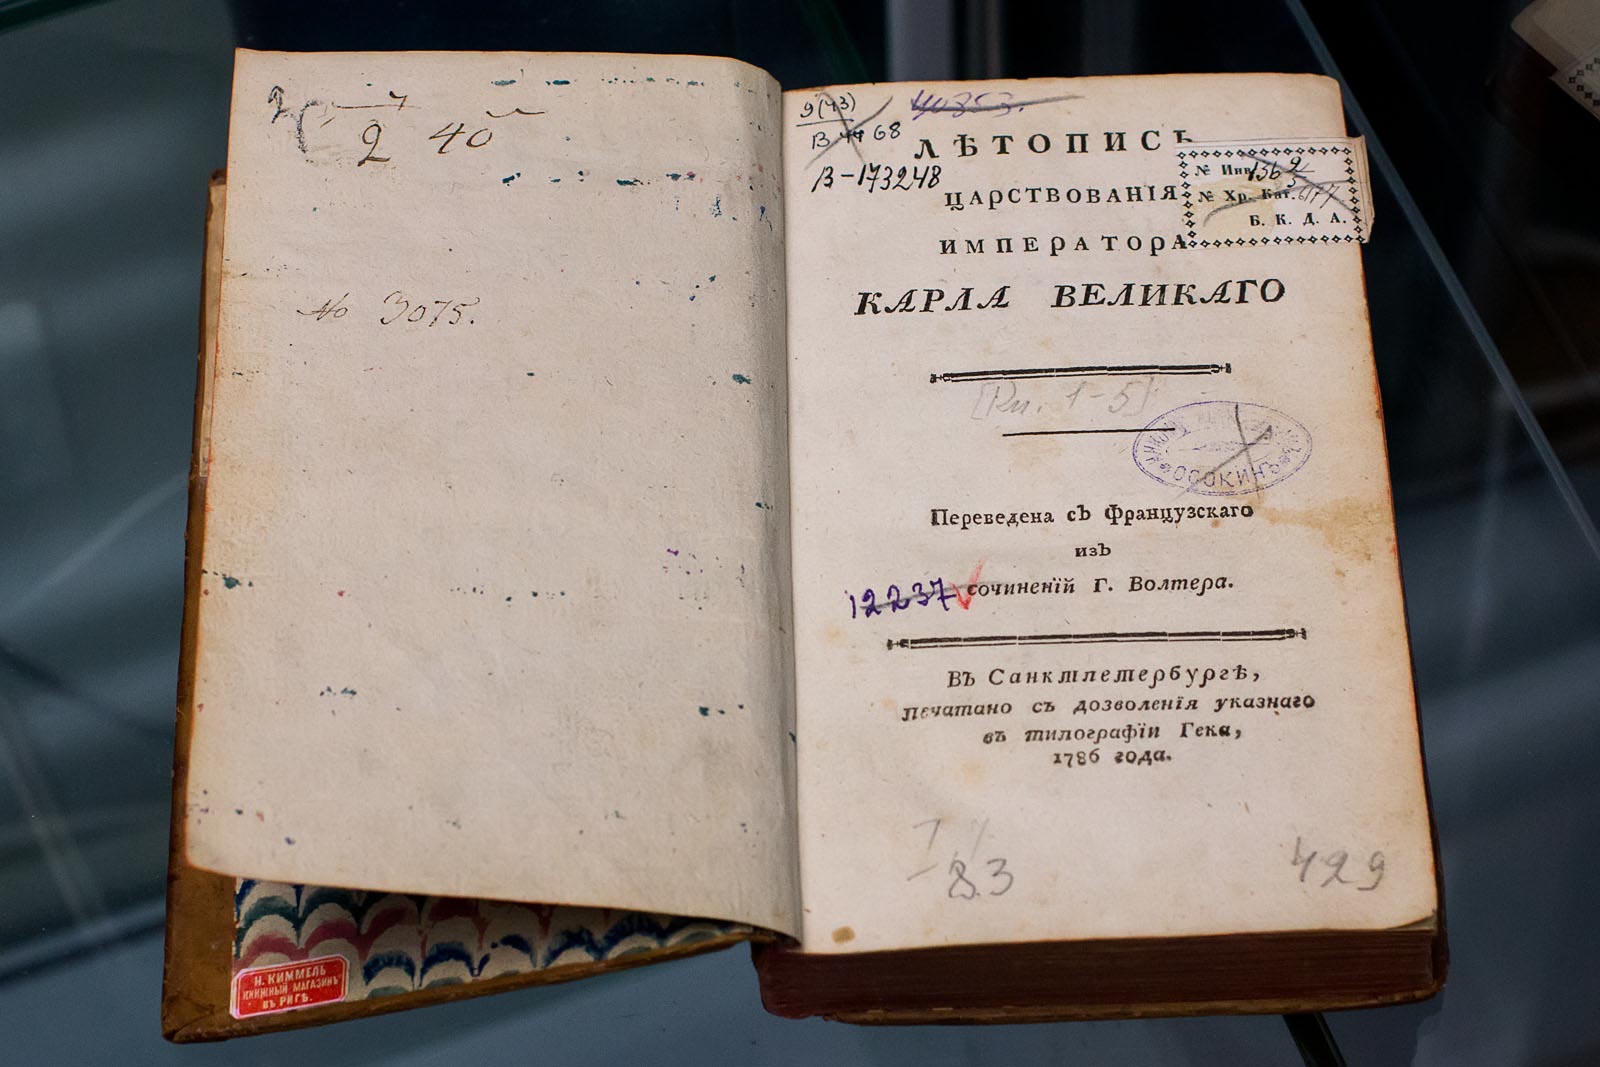 2 40
No 3075.
Н. КИММЕЛЬ
КНИЖНЫЙ МАГАЗИНЪ
ВЪ РИГѢ.
9(43)
40353.
В 44 68
В-173248
ЛѢТОПИСЬ
ЦАРСТВОВАНІЯ
ИМПЕРАТОРА
КАРЛА ВЕЛИКАГО
№ Инв. 136
№ Хр. Кат.
Б. К. Д. А.
[Кн. 1-5]
ОСОКИНЪ
Переведена съ Французскаго
изъ
сочиненій Г. Волтера.
12237
Въ Санктпетербургѣ,
печатано съ дозволенія указнаго
въ типографіи Гека,
1786 года.
83
429